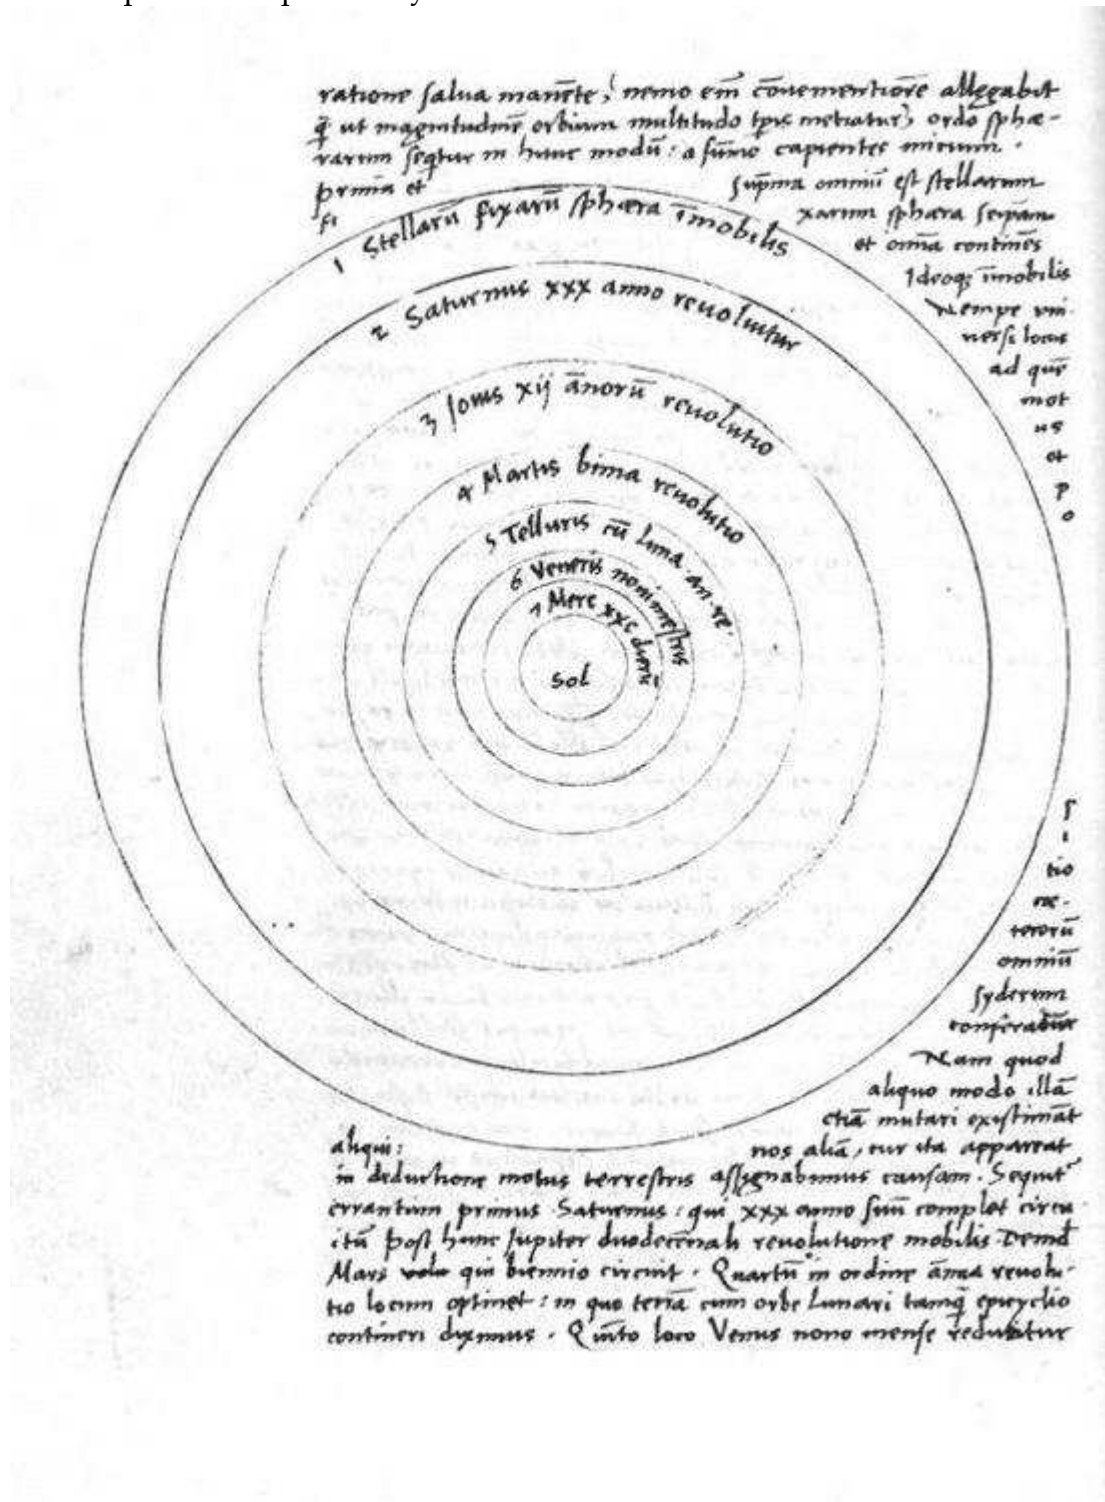 ratione salua manẽte, nemo em̃ cõuenientiorẽ allegabit
q̃ ut magnitudinẽ orbium multitudo tp̃is metiatur, ordo sphæ-
rarum seq̃tur in hunc modũ: a sũmo capientes initium.
prima et sup̃ma omniũ est stellarum
fi xarum sphæra seip̃am
et om̃ia continẽs
Ideoq; ĩmobilis
Nempe uni
uersi locus
ad quẽ
mot
us
et
p
o
1 Stellarũ fixarũ sphæra ĩmobilis
2 Saturnus xxx anno reuoluitur
3 Jouis xij ãnorũ reuolutio
4 Martis bima reuolutio
5 Telluris cũ luna an. re.
6 Veneris nonimestris
7 Merc xxc dierũ
Sol
s
i
tio
cæ-
terorũ
omniũ
syderum
conferatur
Nam quod
aliquo modo illã
etiã mutari existimãt
aliqui: nos aliã, cur ita appareat
in deductione motus terrestris assignabimus causam. Sequit᷑
errantium primus Saturnus: qui xxx anno suũ complet circu
itũ post hunc Jupiter duodecẽnali reuolutione mobilis. Deind
Mars qui biennio circuit. Quartũ in ordine ãnua reuolu-
tio locum optinet: in quo terrã cum orbe Lunari tamq̃ epicyclio
contineri diximus. Quĩto loco Venus nono mense reducitur